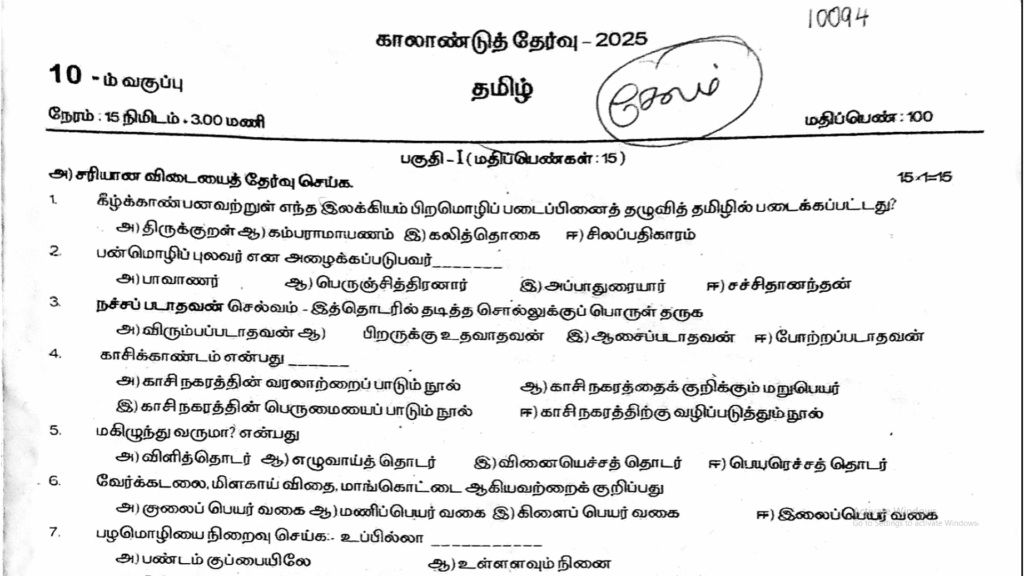 10094
காலாண்டுத் தேர்வு – 2025
10 - ம் வகுப்பு
தமிழ்
சேலம்
நேரம் : 15 நிமிடம் + 3.00 மணி
மதிப்பெண் : 100
பகுதி – I ( மதிப்பெண்கள் : 15 )
அ) சரியான விடையைத் தேர்வு செய்க. 15×1=15
1. கீழ்க்காண்பனவற்றுள் எந்த இலக்கியம் பிறமொழிப் படைப்பினைத் தழுவித் தமிழில் படைக்கப்பட்டது?
அ) திருக்குறள் ஆ) கம்பராமாயணம் இ) கலித்தொகை ஈ) சிலப்பதிகாரம்
2. பன்மொழிப் புலவர் என அழைக்கப்படுபவர்_______
அ) பாவாணர் ஆ) பெருஞ்சித்திரனார் இ) அப்பாதுரையார் ஈ) சச்சிதானந்தன்
3. நச்சப் படாதவன் செல்வம் - இத்தொடரில் தடித்த சொல்லுக்குப் பொருள் தருக
அ) விரும்பப்படாதவன் ஆ) பிறருக்கு உதவாதவன் இ) ஆசைப்படாதவன் ஈ) போற்றப்படாதவன்
4. காசிக்காண்டம் என்பது ______
அ) காசி நகரத்தின் வரலாற்றைப் பாடும் நூல் ஆ) காசி நகரத்தைக் குறிக்கும் மறுபெயர்
இ) காசி நகரத்தின் பெருமையைப் பாடும் நூல் ஈ) காசி நகரத்திற்கு வழிப்படுத்தும் நூல்
5. மகிழுந்து வருமா? என்பது
அ) விளித்தொடர் ஆ) எழுவாய்த் தொடர் இ) வினையெச்சத் தொடர் ஈ) பெயரெச்சத் தொடர்
6. வேர்க்கடலை, மிளகாய் விதை, மாங்கொட்டை ஆகியவற்றைக் குறிப்பது
அ) குலைப் பெயர் வகை ஆ) மணிப்பெயர் வகை இ) கிளைப் பெயர் வகை ஈ) இலைப்பெயர் வகை
Activate Windows
Go to Settings to activate Windows.
7. பழமொழியை நிறைவு செய்க:- உப்பில்லா ___________
அ) பண்டம் குப்பையிலே ஆ) உள்ளளவும் நினை